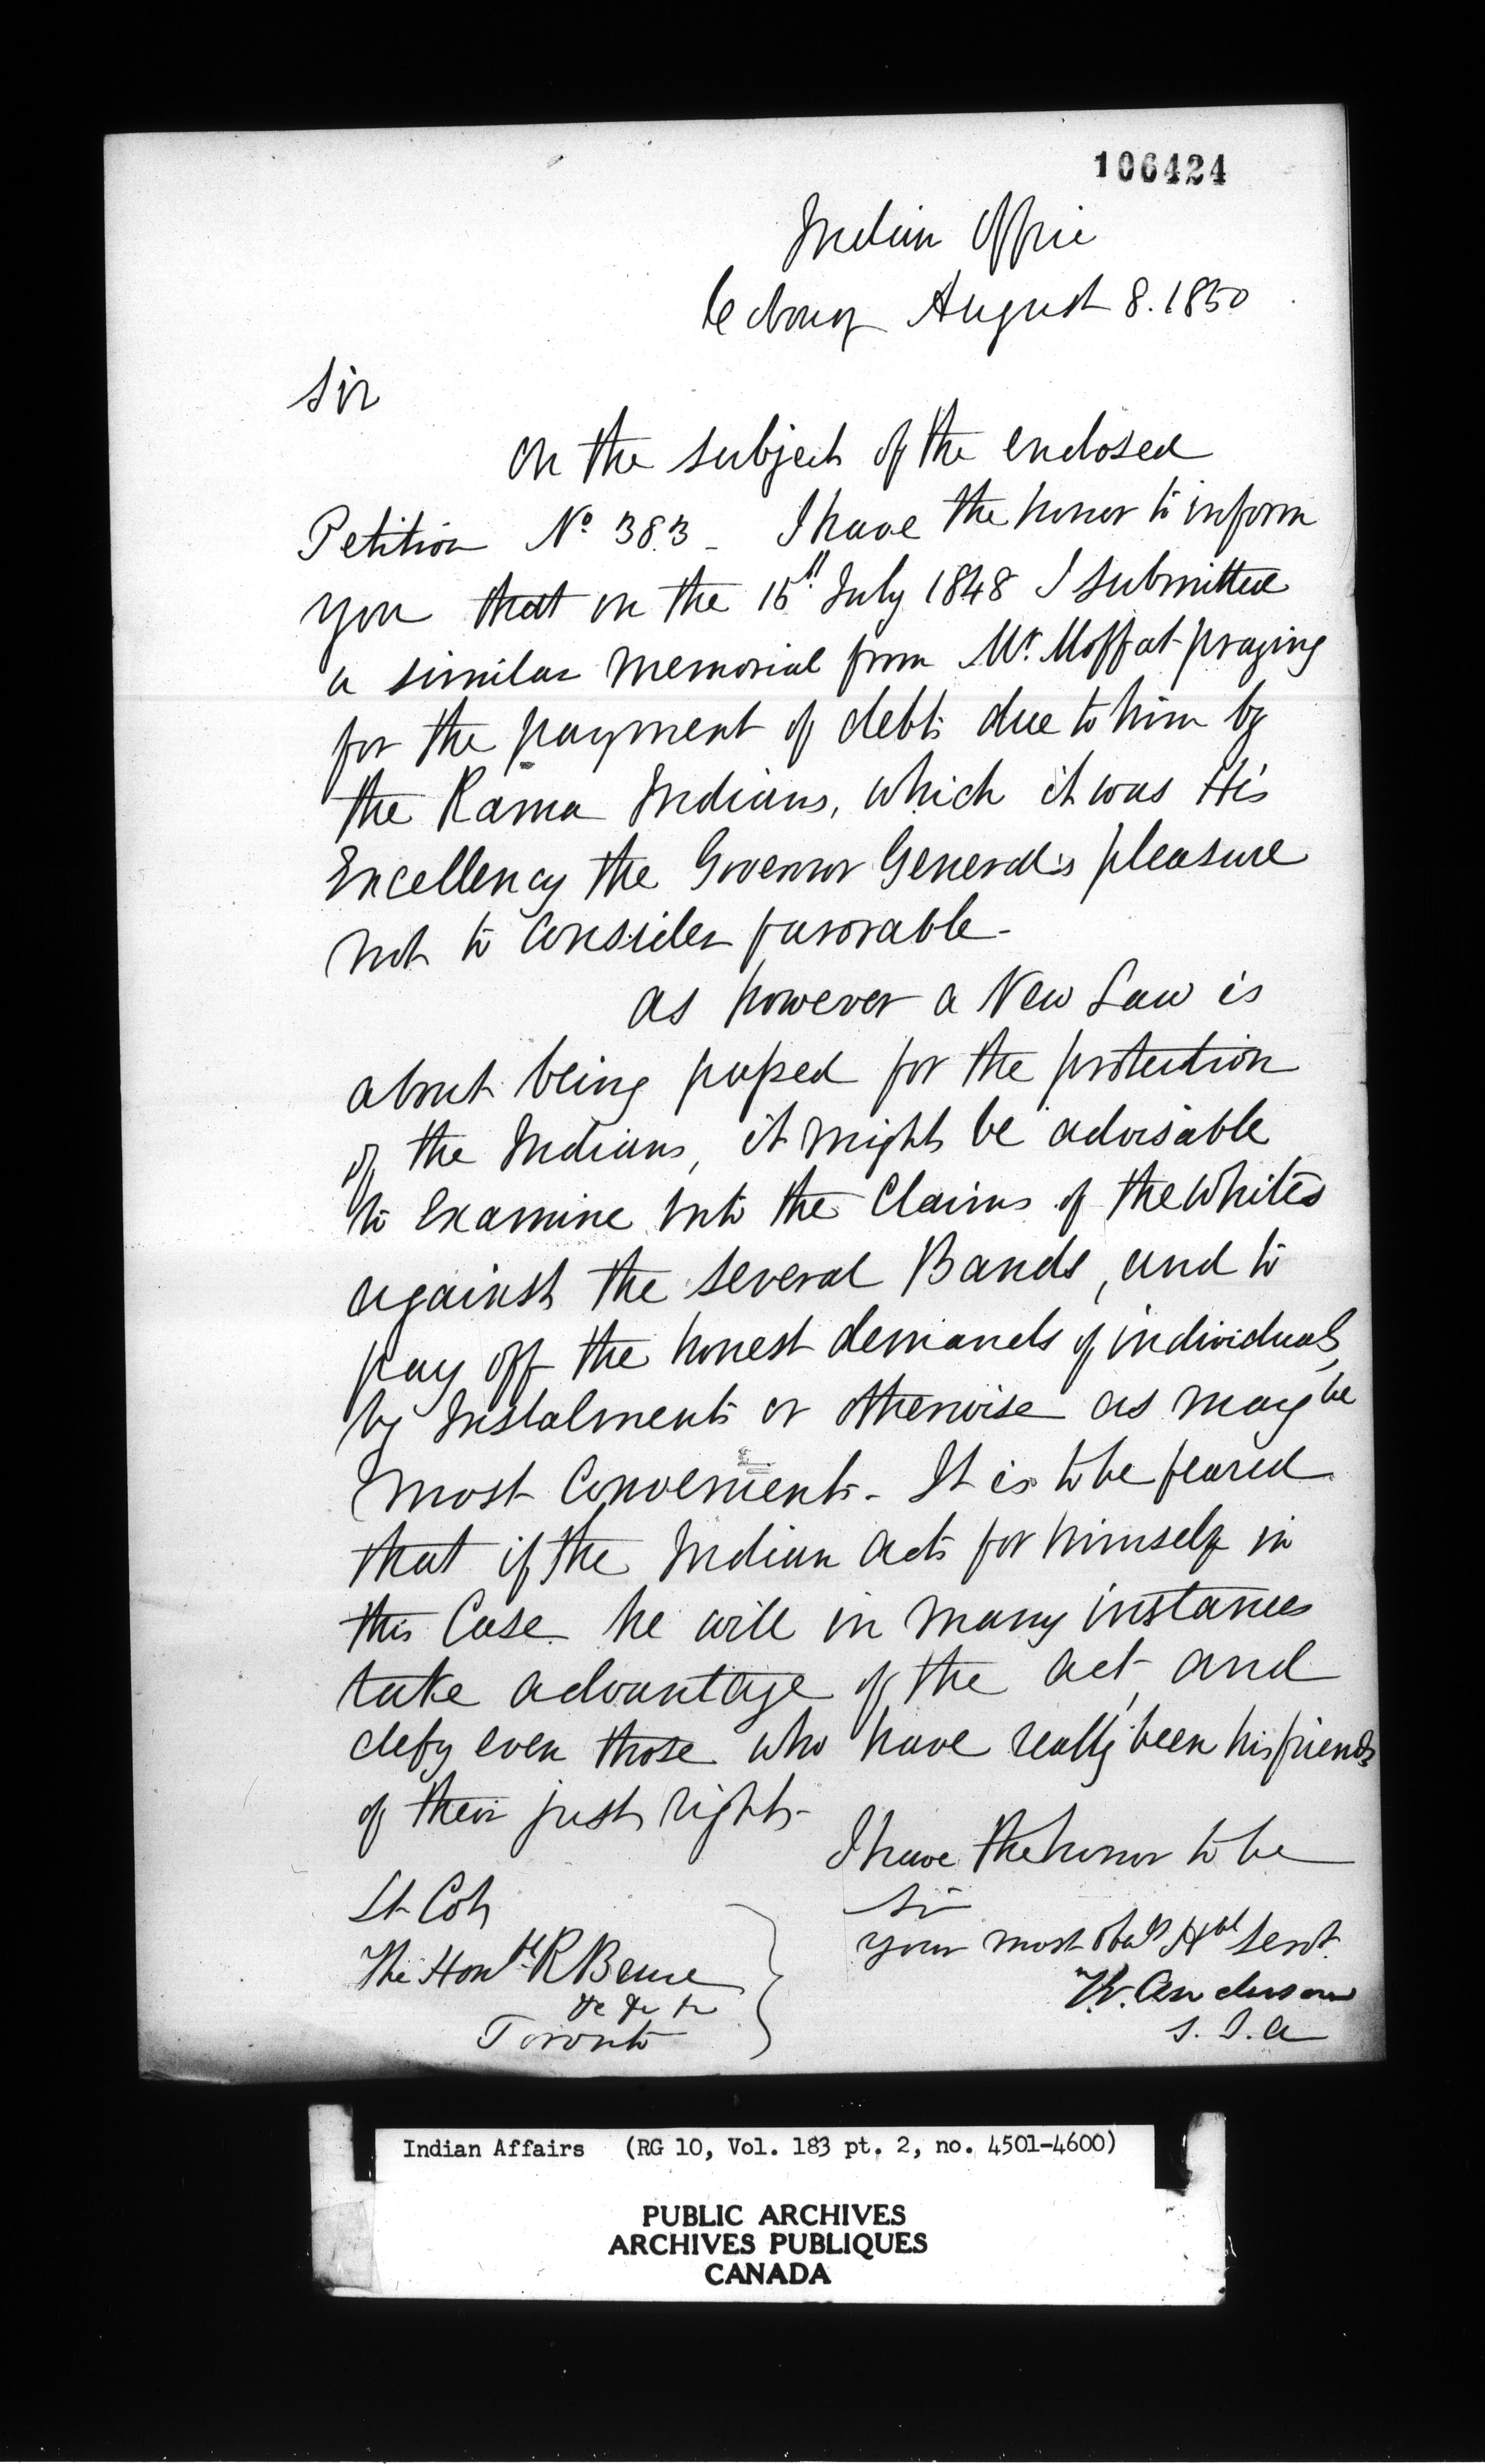 106424
Indian Office
Cobourg August 8. 1850
Sir
On the subject of the enclosed
Petition No 383 - I have the honor to inform
you that on the 15th July 1848 I submitted
a similar memorial from Mr. Moffat praying
for the payment of debts due to him by
the Rama Indians, which it was His
Excellency the Governor General's pleasure
not to consider favorable -
As however a New Law is
about being passed for the protection
of the Indians, it might be advisable
to Examine into the Claims of the Whites
against the several Bands, and to
pay off the honest demands of individuals,
by Instalments or otherwise as may be
most Convenient - It is to be feared
that if the Indian acts for himself in
this Case he will in many instances
take advantage of the act, and
defy even those who have really been his friends
of their just rights -
I have the honor to be
Sir
Your most Obedt Hbl Servt
T.G. Anderson
S.I.A
Lt Col
The Honble R Bruce
&c &c &c
Toronto
Indian Affairs (RG 10, Vol. 183 pt. 2, no. 4501-4600)
PUBLIC ARCHIVES
ARCHIVES PUBLIQUES
CANADA